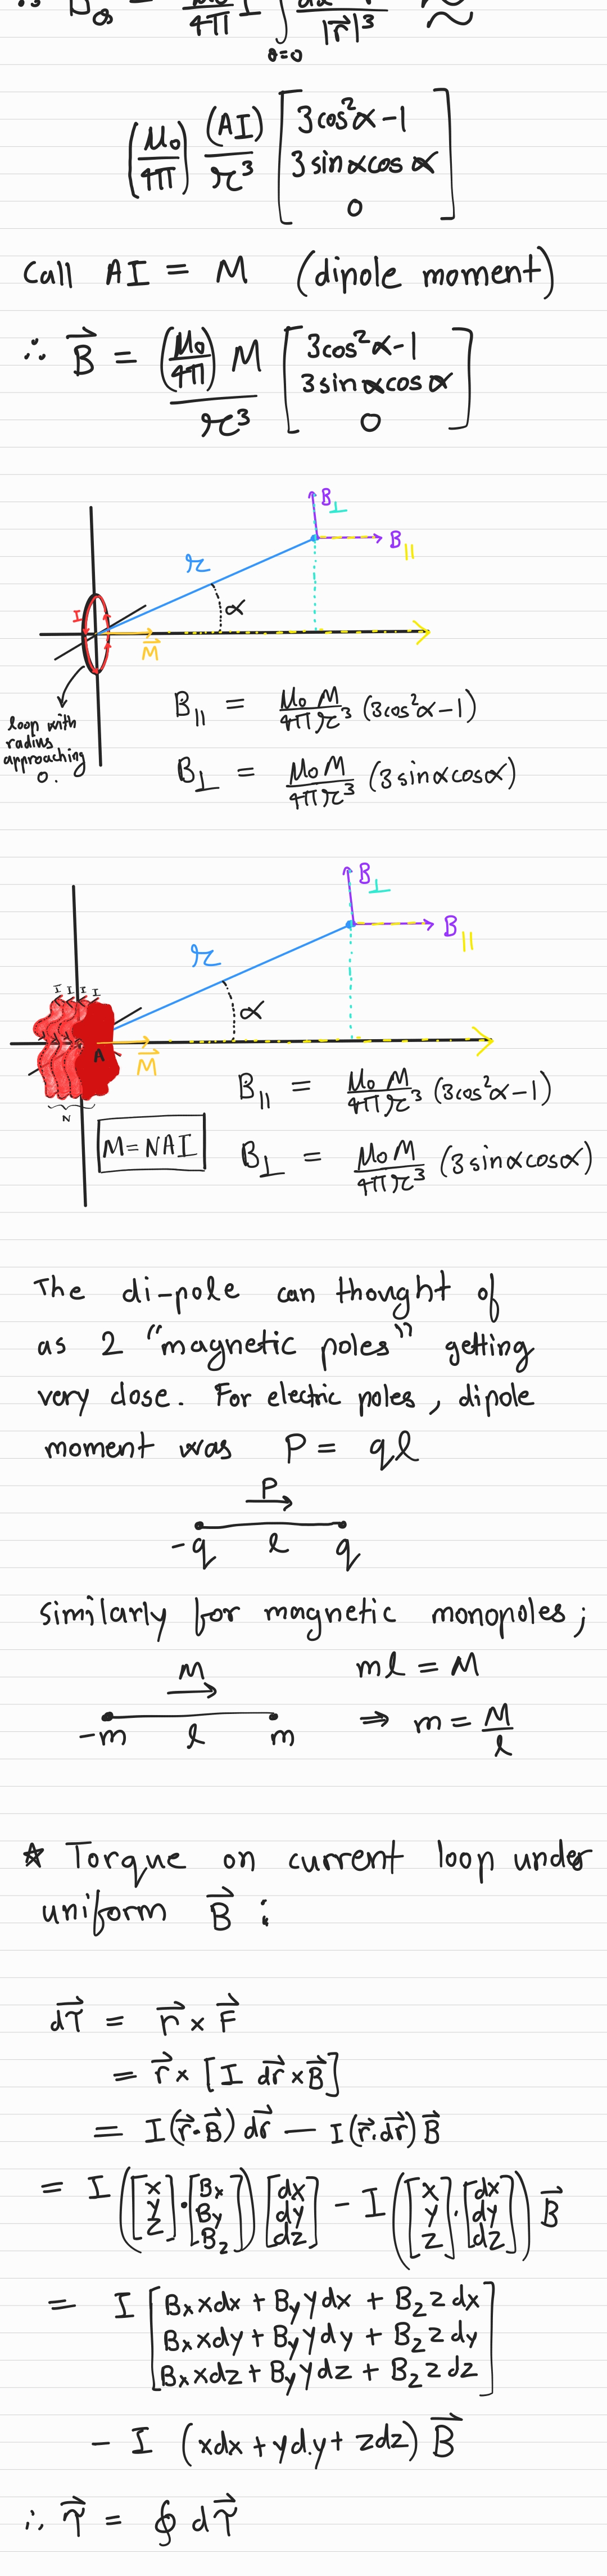 ∴ B₀ = μ₀/4π I ∫θ=0 /|r⃗|³
(μ₀/4π) (AI)/r³ [3cos²α-1
3sinαcosα
0]
Call AI = M (dipole moment)
∴ B⃗ = (μ₀/4π) M/r³ [3cos²α-1
3sinαcosα
0]
B⊥
r B||
I α
M⃗
loop with
radius
approaching
0.
B|| = μ₀M/4πr³ (3cos²α-1)
B⊥ = μ₀M/4πr³ (3sinαcosα)
B⊥
r B||
I I I I α
A M⃗
N
M=NAI
B|| = μ₀M/4πr³ (3cos²α-1)
B⊥ = μ₀M/4πr³ (3sinαcosα)
The di-pole can thought of
as 2 "magnetic poles" getting
very close. For electric poles, dipole
moment was P = qℓ
P
-q ℓ q
similarly for magnetic monopoles;
M mℓ = M
-m ℓ m ⇒ m = M/ℓ
☆ Torque on current loop under
uniform B⃗ :
dτ⃗ = r⃗ × F⃗
= r⃗ × [I dr⃗ × B⃗]
= I(r⃗·B⃗) dr⃗ - I(r⃗.dr⃗) B⃗
= I ([x y z]·[Bx By Bz]) [dx dy dz] - I ([x y z].[dx dy dz]) B⃗
= I [Bx xdx + By ydx + Bz zdx
Bx xdy + By ydy + Bz zdy
Bx xdz + By ydz + Bz zdz]
- I (xdx + yd.y + zdz) B⃗
∴ τ⃗ = ∮ dτ⃗